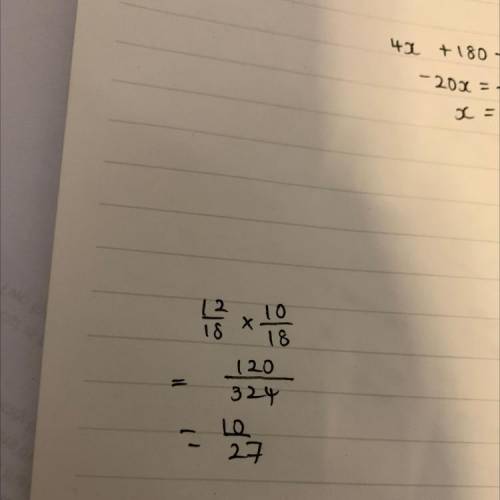 4x + 180 -
-20x = -
x =
12/18 × 10/18
= 120/324
= 10/27